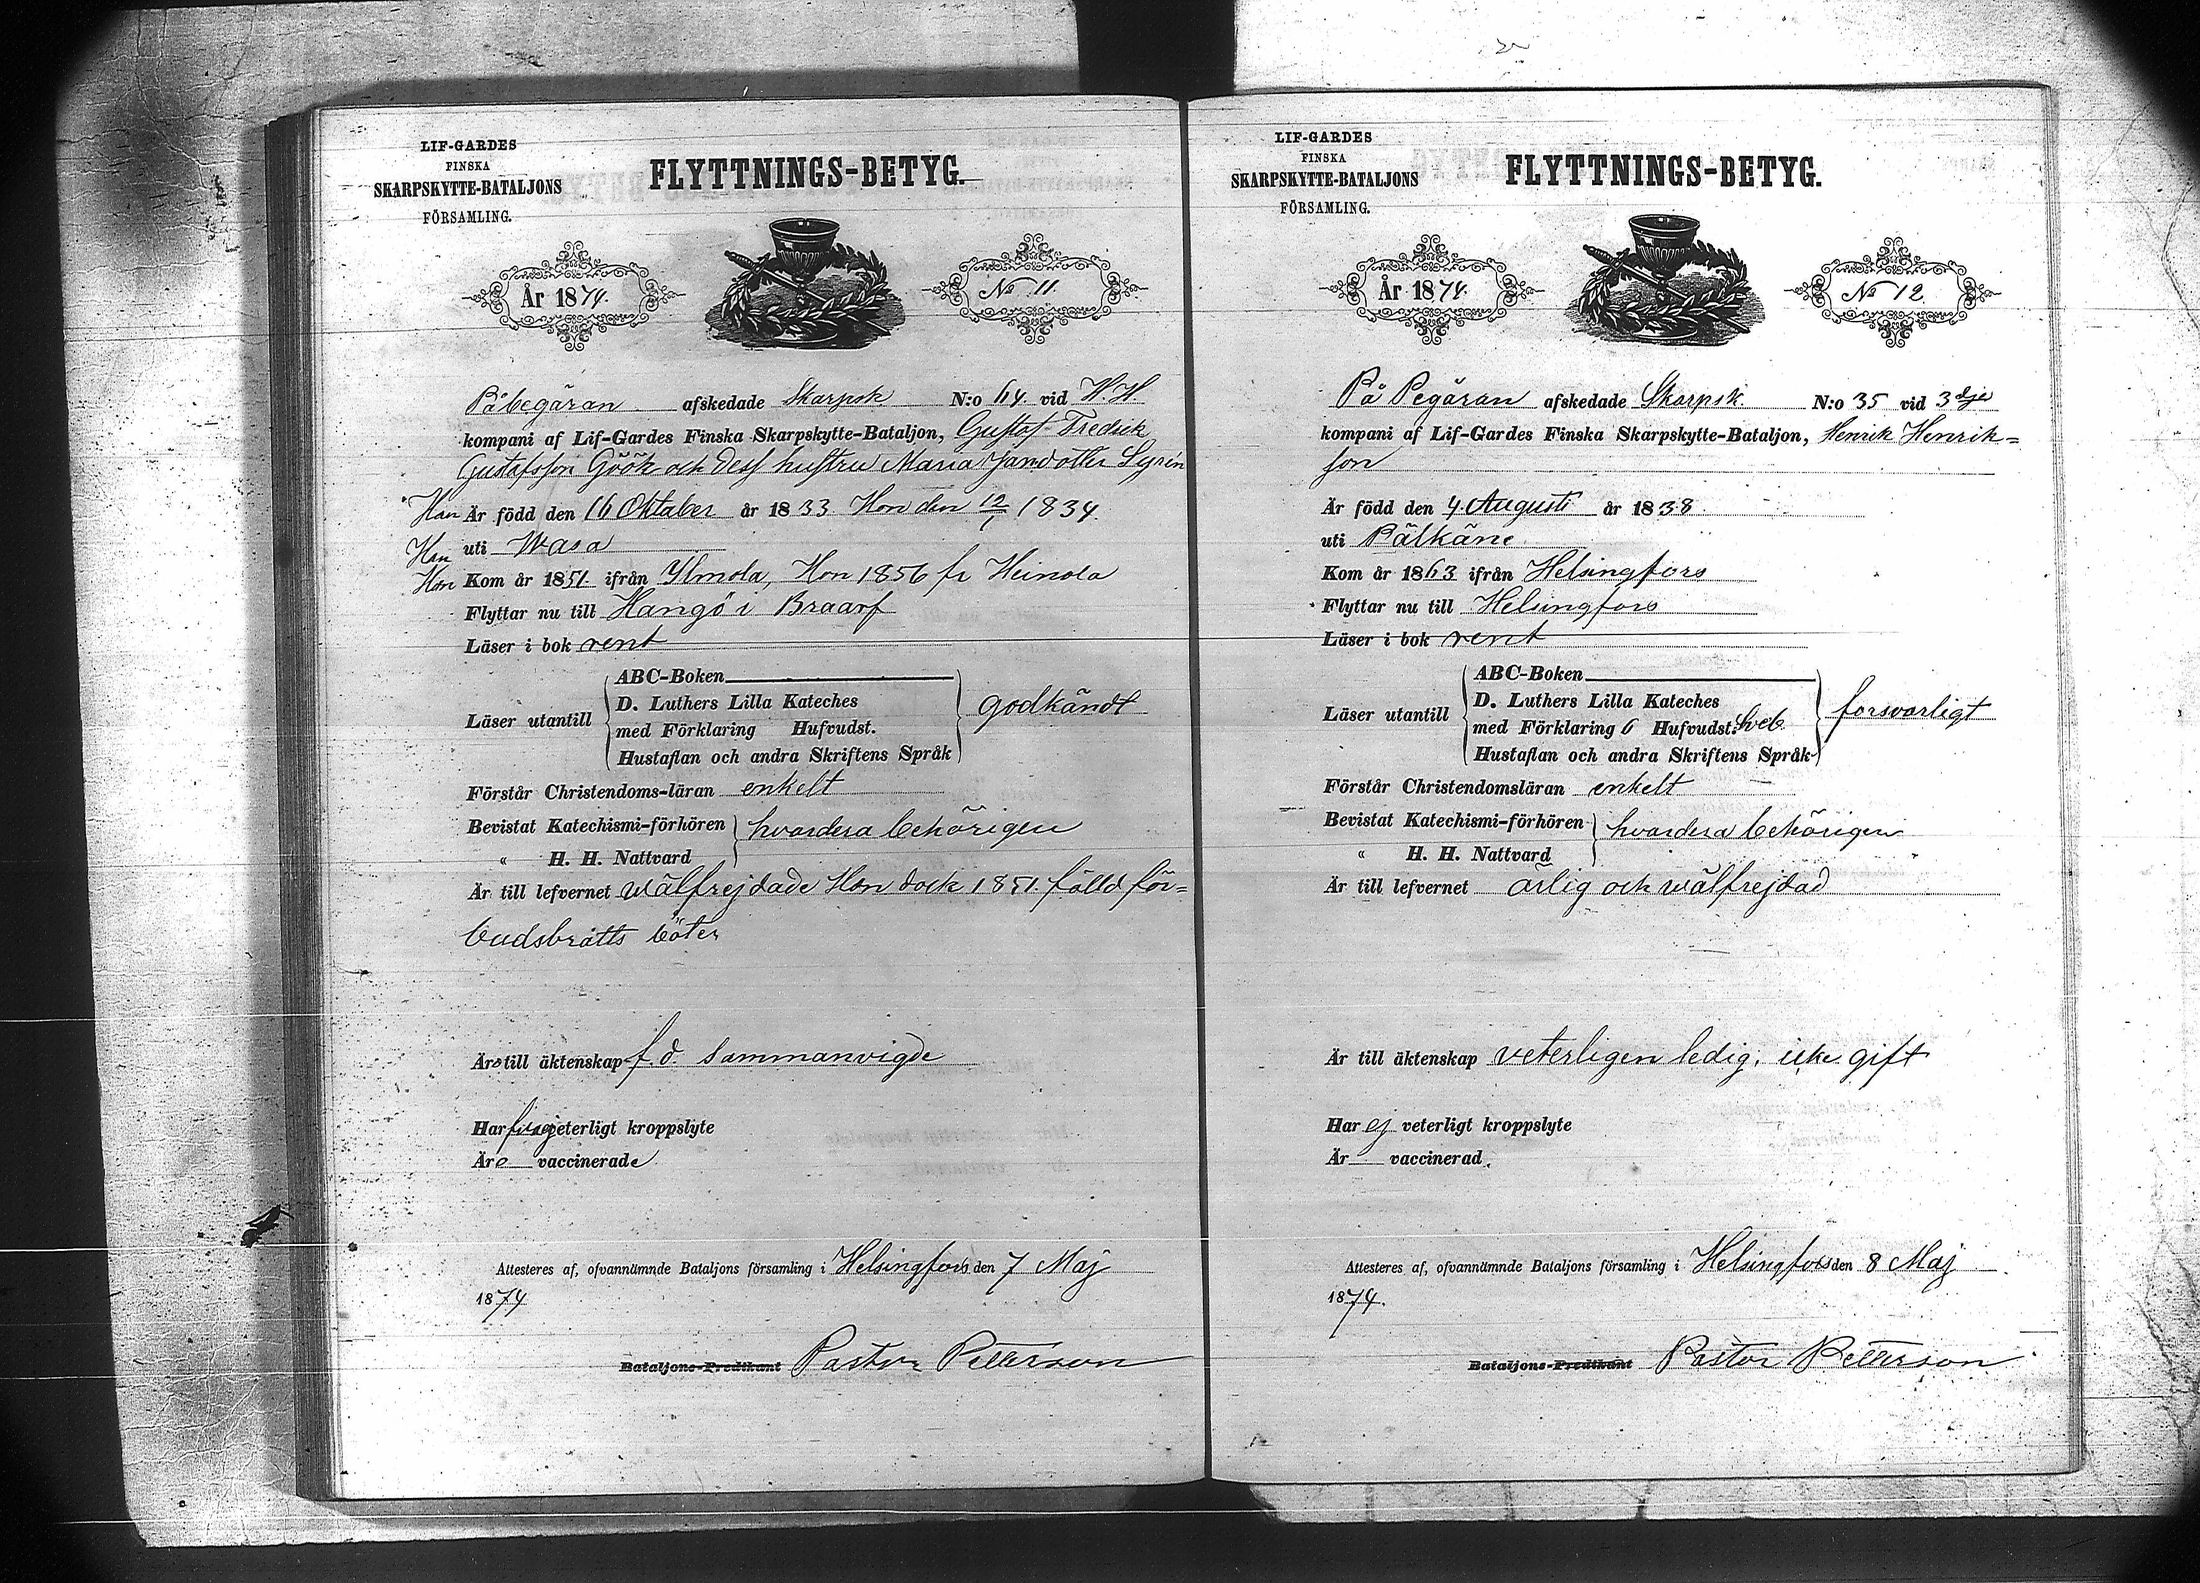 LIF-GARDES
FINSKA
SKARPSKYTTE-BATALJONS
FÖRSAMLING.
FLYTTNINGS-BETYG.
År 1874.
No 11
På begäran afskedade Skarpsk. N:o 64 vid H. H.
kompani af Lif-Gardes Finska Skarpskytte-Bataljon, Gustaf Fredrik
Gustafsson Göök och dess hustru Maria
Han Är född den 16 Oktober år 1833 Hon den 12/1 1834.
Han uti Wasa
Hon Kom år 1851 ifrån Ylmola, Hon 1856 fr Heinola
Flyttar nu till Hangö i Braarf
Läser i bok rent
Läser utantill
ABC-Boken
D. Luthers Lilla Kateches
med Förklaring Hufvudst.
Hustaflan och andra Skriftens Språk
godkändt
Förstår Christendoms-läran enkelt
Bevistat Katechismi-förhören
" H. H. Nattvard
hvardera behörigen
Är till lefvernet wälfrejdade Hon dock 1851 fälld för=
budsbrätts böter
Äro till äktenskap f. d. sammanvigde
Har veterligt kroppslyte
Äro vaccinerade
Attesteres af, ofvannämnde Bataljons församling i Helsingfors den 7 Maj
1874
Bataljons-Predikant Pastor Petterson
LIF-GARDES
FINSKA
SKARPSKYTTE-BATALJONS
FÖRSAMLING.
FLYTTNINGS-BETYG.
År 1874.
No 12
På Begäran afskedade Skarpsk. N:o 35 vid 3dje
kompani af Lif-Gardes Finska Skarpskytte-Bataljon, Henrik Henrik=
son
Är född den 4 Augusti år 1838
uti Pälkäne
Kom år 1863 ifrån Helsingfors
Flyttar nu till Helsingfors
Läser i bok rent
Läser utantill
ABC-Boken
D. Luthers Lilla Kateches
med Förklaring 6 Hufvudst. Sveb.
Hustaflan och andra Skriftens Språk
forsvarligt
Förstår Christendomsläran enkelt
Bevistat Katechismi-förhören
" H. H. Nattvard
hvardera behörigen
Är till lefvernet ärlig och wälfrejdad
Är till äktenskap veterligen ledig, icke gift
Har ej veterligt kroppslyte
Är vaccinerad.
Attesteres af, ofvannämnde Bataljons församling i Helsingfors den 8 Maj
1874.
Bataljons-Predikant Pastor Petterson